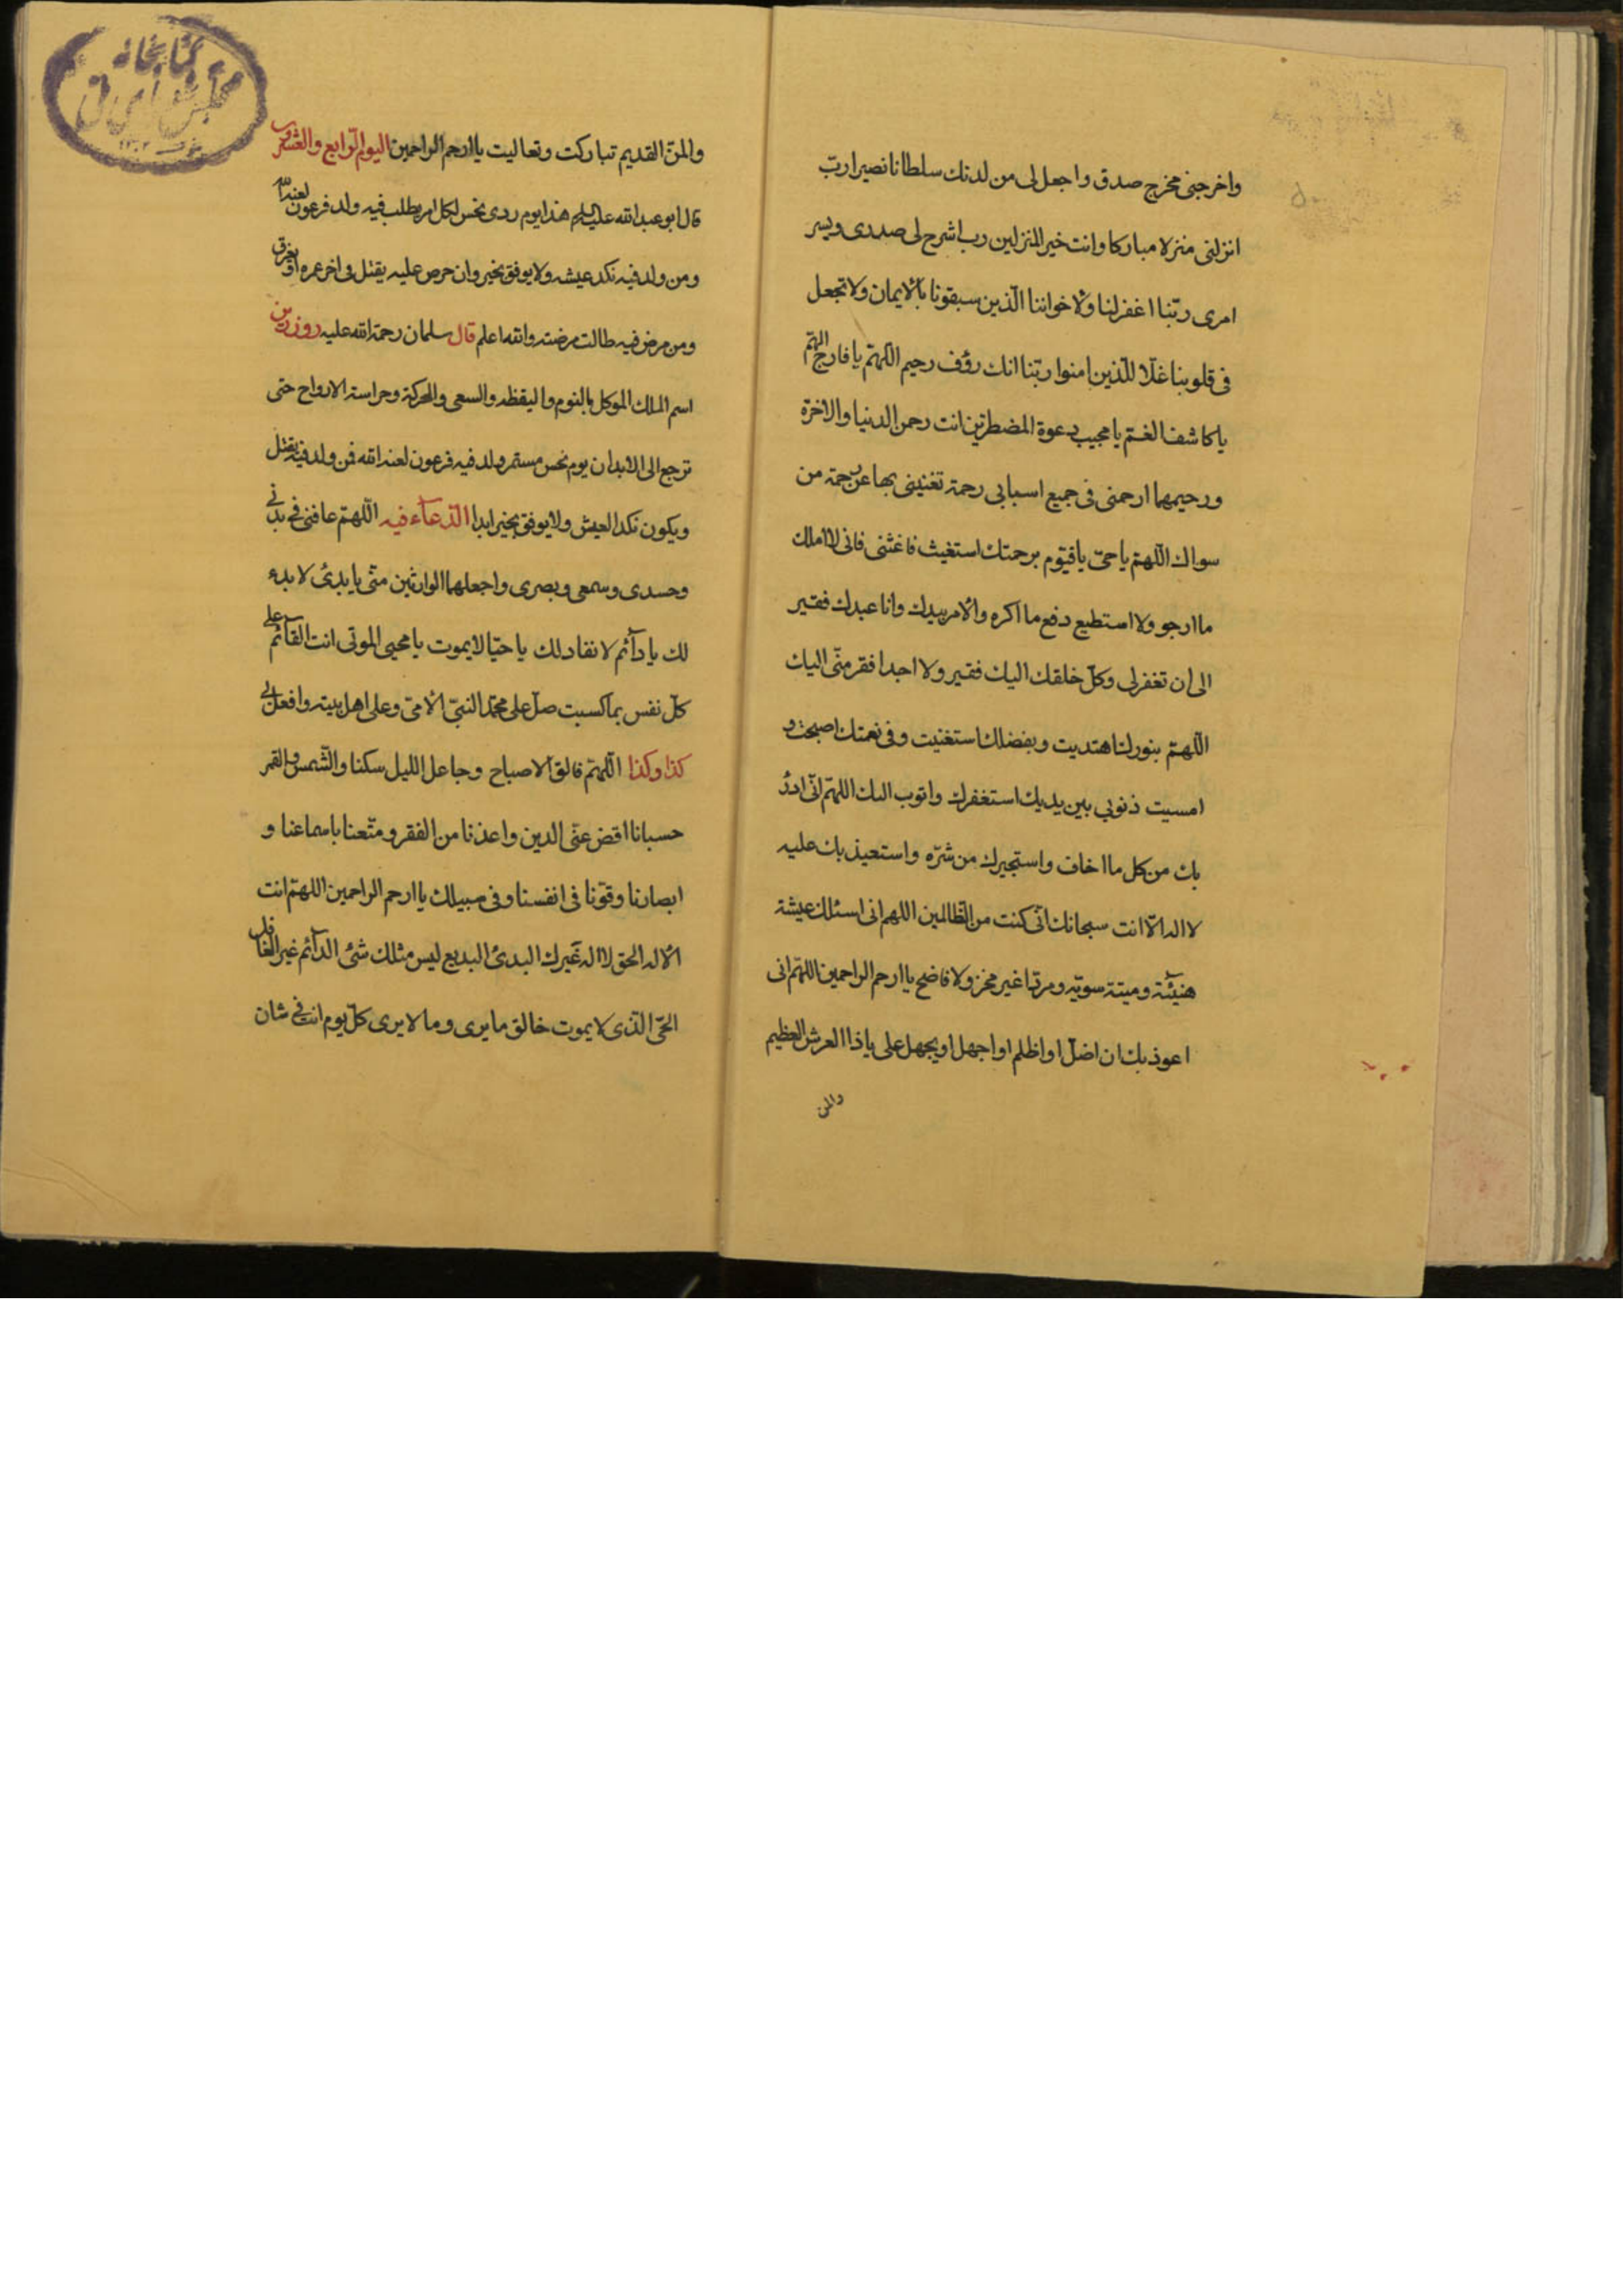 واخرجنى مخرج صدق واجعل لى من لدنك سلطانا نصيرا ربّ
انزلنى منزلا مباركا وانت خير المنزلين رب اشرح لى صدرى ويسر
امرى ربّنا اغفر لنا ولاخواننا الّذين سبقونا بالايمان ولا تجعل
فى قلوبنا غلّا للّذين امنوا ربّنا انك رؤف رحيم اللّهمّ يا فارج الهمّ
يا كاشف الغمّ يا مجيب دعوة المضطرّين انت رحمن الدنيا والاخرة
ورحيمهما ارحمنى فى جميع اسبابى رحمة تغنينى بها عن رحمة من
سواك اللّهمّ يا حىّ يا قيّوم برحمتك استغيث فاغثنى فانى لا املك
ما ارجو ولا استطيع دفع ما اكره والامر بيدك وانا عبدك فقير
الى ان تغفر لى وكلّ خلقك اليك فقير ولا اجد افقر منّى اليك
اللّهمّ بنورك اهتديت وبفضلك استغنيت وفى نعمتك اصبحت و
امسيت ذنوبى بين يديك استغفرك واتوب اليك اللهمّ انّى ادرؤ
بك من كل ما اخاف واستجيرك من شرّه واستعيذ بك عليه
لا اله الّا انت سبحانك انّى كنت من الظالمين اللهم انى اسئلك عيشة
هنيئة وميتة سويّه ومردّا غير مخز ولا فاضح يا ارحم الراحمين اللهمّ انى
اعوذ بك ان اضلّ او اظلم او اجهل او يجهل على يا ذا العرش العظيم
والمن
كتابخانه
مجلس شوراى ملى
١٣٠٢
والمنّ القديم تباركت وتعاليت يا ارحم الراحمين اليوم الرّابع والعشرون
قال ابو عبد الله عليه السلم هذا يوم ردى نحس لكل امر يطلب فيه ولد فرعون لعنه الله
ومن ولد فيه نكد عيشه ولا يوفق بخير وان حرص عليه يقتل فى اخر عمره او يغرق
ومن مرض فيه طالت مرضته والله اعلم قال سلمان رحمة الله عليه روز دين
اسم الملك الموكل بالنوم واليقظه والسعى والحركة وحراسة الارواح حتى
ترجع الى الابدان يوم نحس مستمر ولد فيه فرعون لعنه الله فمن ولد فيه يقتل
ويكون نكد العيش ولا يوفق بخير ابدا الدّعآء فيه اللّهمّ عافنى فى بدنى
وجسدى وسمعى وبصرى واجعلهما الوارثين منّى يا بدئ لا بدء
لك يا دآئم لا نفاد لك يا حيّا لا يموت يا محيى الموتى انت القآئم على
كلّ نفس بما كسبت صلّ على محمّد النبىّ الامىّ وعلى اهل بيته وافعل بى
كذا وكذا اللّهمّ فالق الاصباح وجاعل الليل سكنا والشّمس والقمر
حسبانا اقض عنّى الدين واعذنا من الفقر ومتّعنا باسماعنا و
ابصارنا وقوّنا فى انفسنا وفى سبيلك يا ارحم الراحمين اللهمّ انت
الاله الحق لا اله غيرك البدئ البديع ليس مثلك شئ الدآئم غير الغافل
الحىّ الّذى لا يموت خالق ما يرى وما لا يرى كلّ يوم انت فى شان